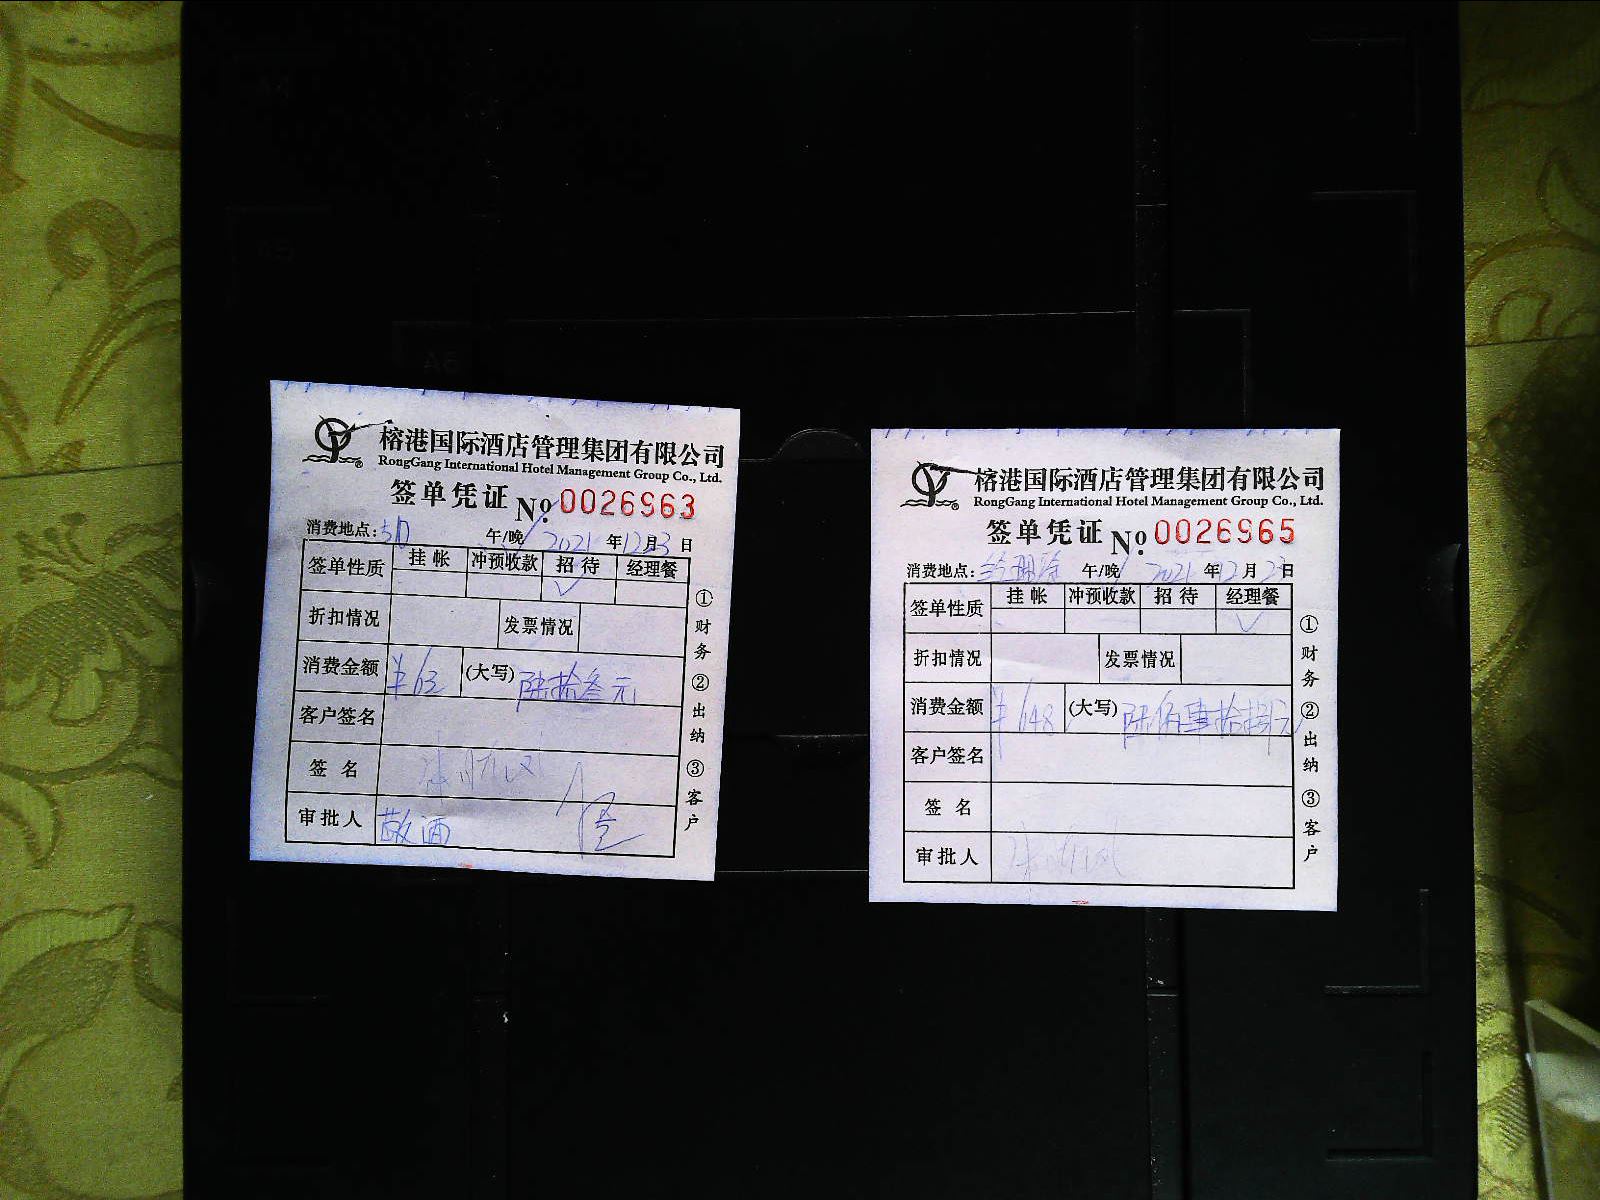 榕港国际酒店管理集团有限公司
RongGang International Hotel Management Group Co., Ltd.
签单凭证 No. 0026963
消费地点: 午/晚 2021 年 12 月 23 日
签单性质 挂帐 冲预收款 招待 经理餐
✓
折扣情况 发票情况
消费金额 ¥63 (大写) 陆拾叁元
客户签名
签名
审批人 敬酒
①财务 ②出纳 ③客户
榕港国际酒店管理集团有限公司
RongGang International Hotel Management Group Co., Ltd.
签单凭证 No. 0026965
消费地点: 午/晚 2021 年 12 月 23 日
签单性质 挂帐 冲预收款 招待 经理餐
✓
折扣情况 发票情况
消费金额 ¥648 (大写) 陆佰肆拾捌元
客户签名
签名
审批人
①财务 ②出纳 ③客户
A6